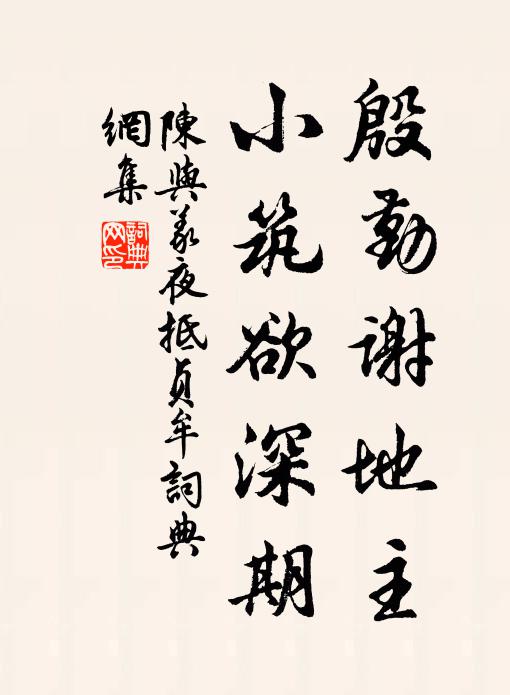 殷勤谢地主
小筑欲深期
陳與義夜抵貞牟詞典
網集
詞典
网印